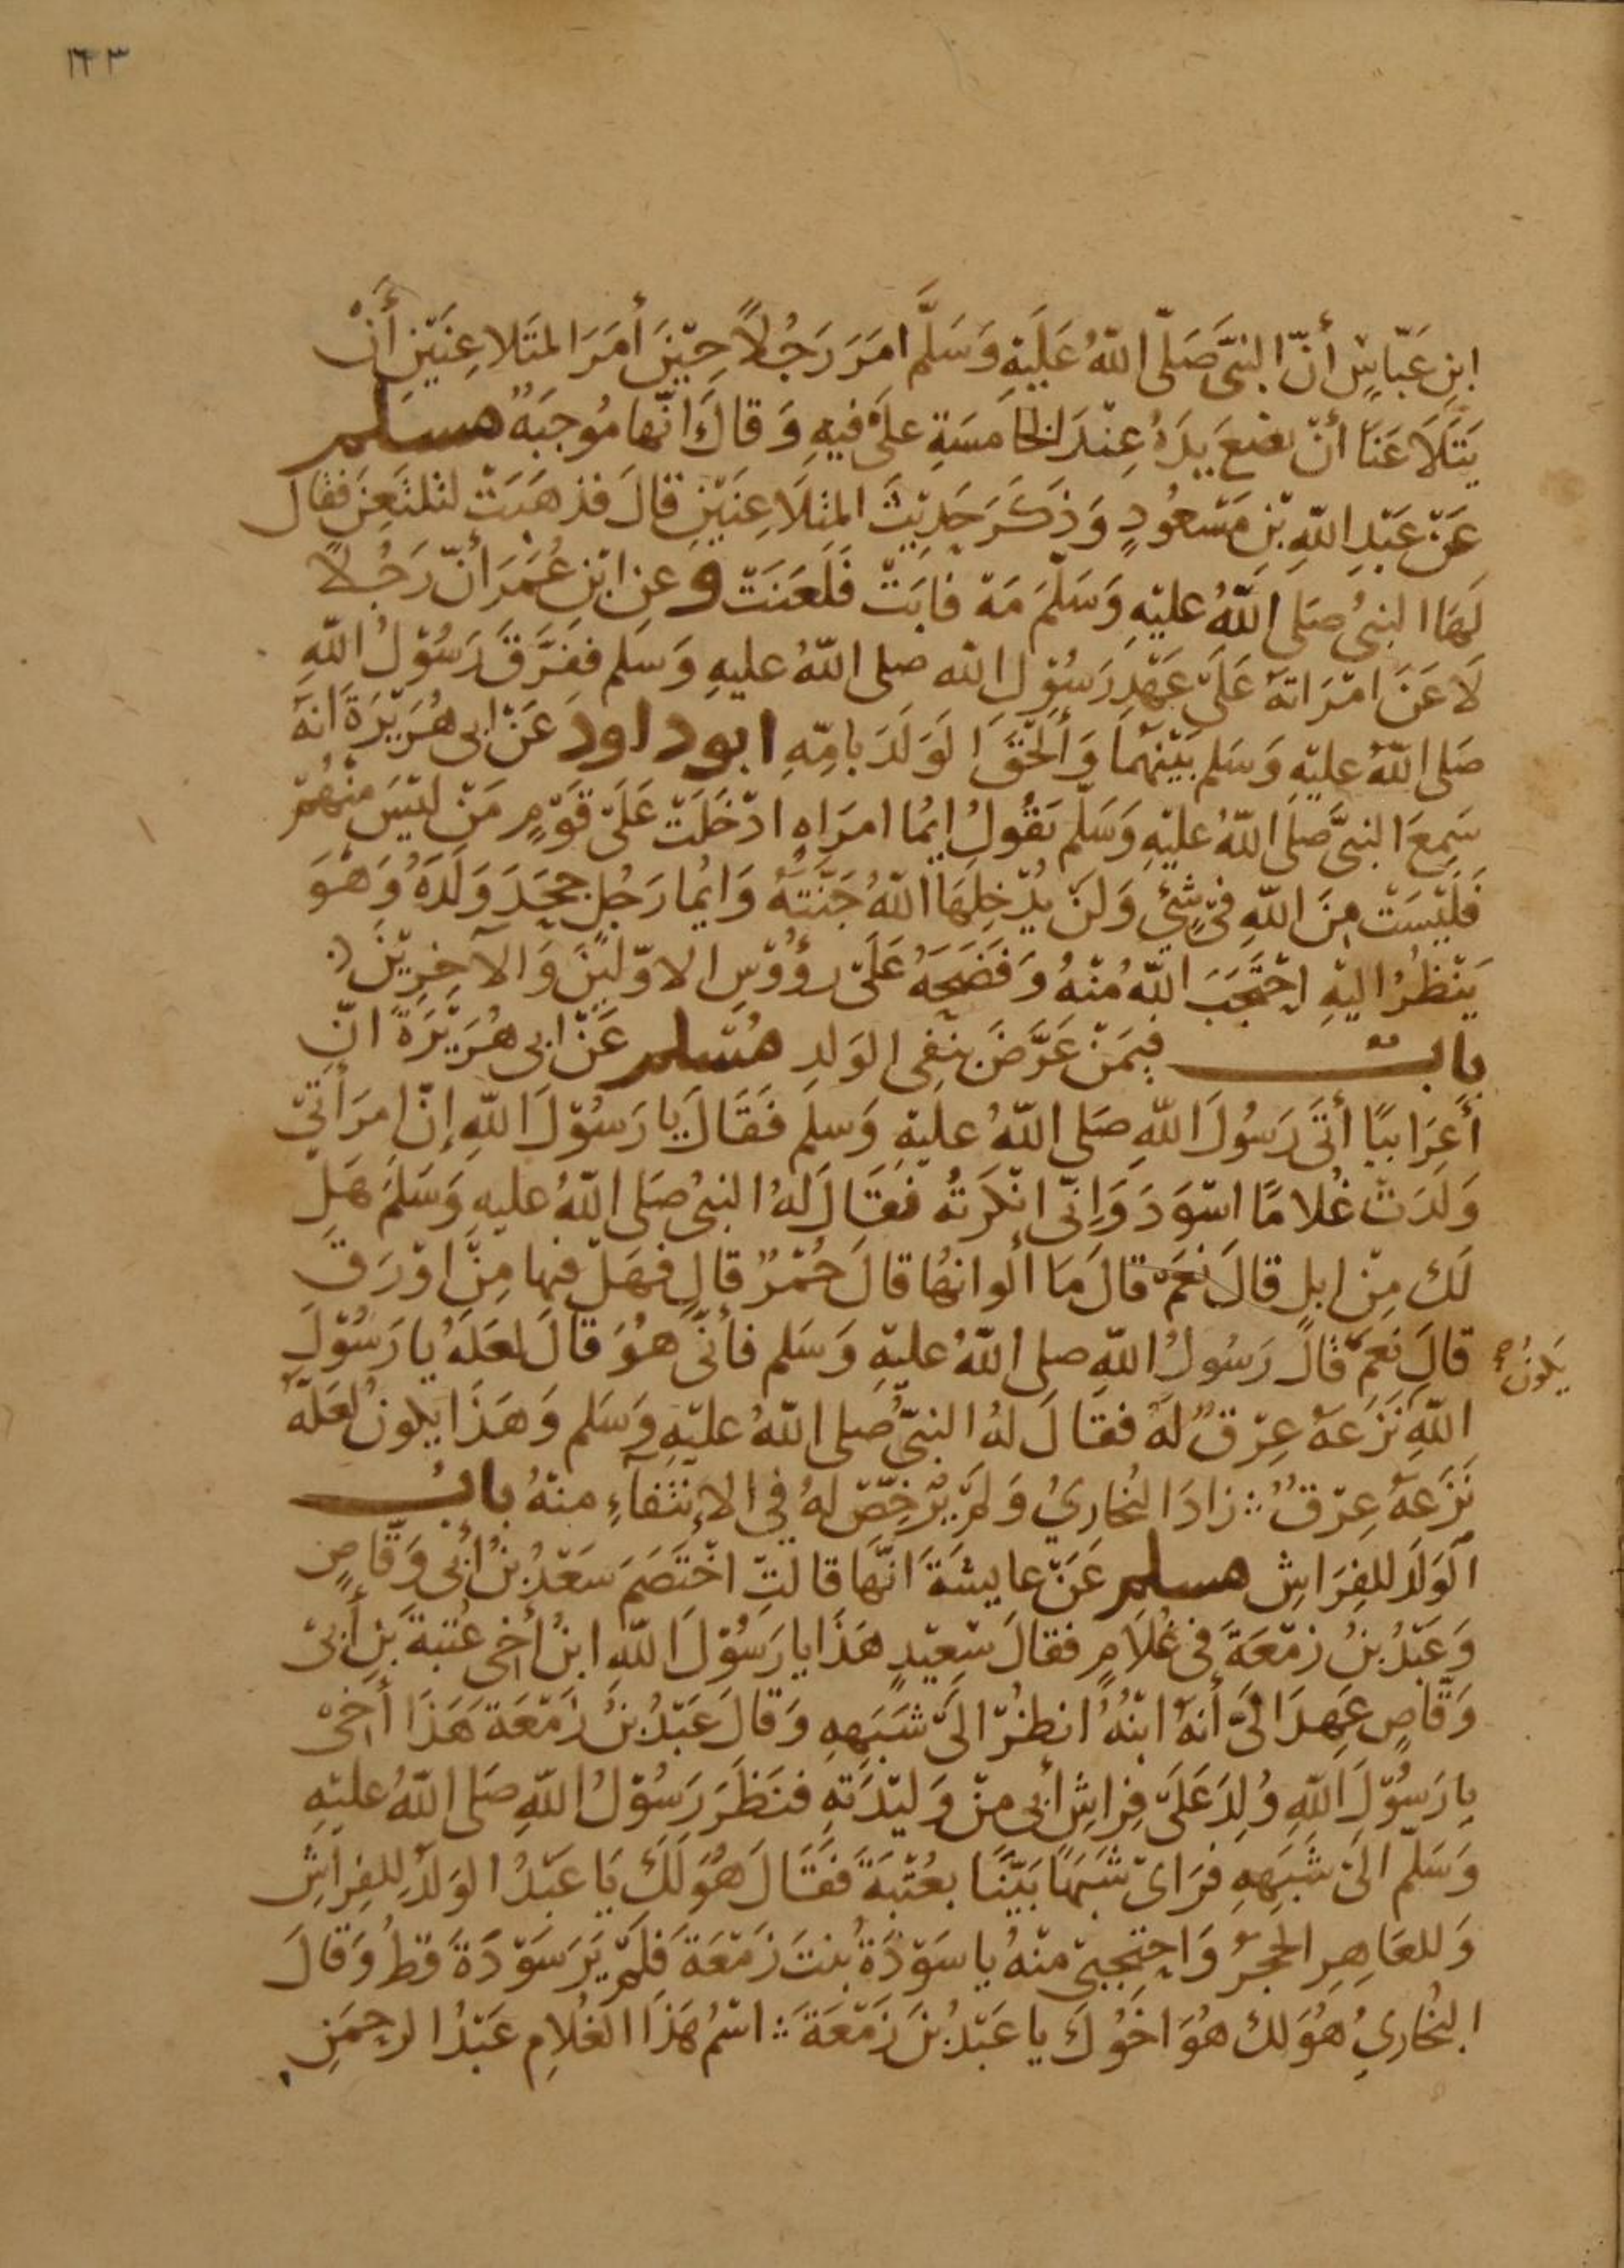 ١٦٣
ابنِ عَبّاسٍ أنّ النبيَّ صَلّى اللهُ عَلَيْهِ وَسَلَّم امَرَ رَجُلاً حِيْنَ أمَرَ المتَلاعِنَيْنِ أَنْ
يَتَلَاعَنَا أنْ يضع يدَهُ عِنْدَ الخامسَةِ علىَ فيهِ وَقالَ انّها مُوجبَةٌ مسلم
عَنْ عَبْدِ اللهِ بْنِ مَسْعُودٍ وَذكَرَ حَدِيْثَ المتلَاعِنَيْنِ قالَ فذهَبَتْ لتلتَعِنَ فقال
لَهَا النبيُ صَلى اللهُ عليْهِ وَسَلّمَ مَهْ فابَتْ فَلَعَنَتْ وعنِ ابْنِ عُمَرَ أنّ رَجُلاً
لَاعَنَ امْرَاتهُ عَلَى عَهْدِ رَسُوْل الله صلى اللهُ عليهِ وَسَلم ففرَّقَ رَسُوْلُ اللهِ
صَلى اللهُ عليْهِ وَسَلم بَيْنهُما وَألْحَقَ الوَلَدَ بامِّهِ ابو داود عَنْ ابى هُرَيْرَةَ انهُ
سَمِعَ النبيَّ صلى اللهُ عليْهِ وَسَلّم يَقُولُ ايُما امرَاهٍ ادْخَلَتْ عَلَى قَوْمٍ مَنْ ليْسَ منْهُمْ
فَلَيْسَتْ مِنَ اللهِ فىْ شئٍ وَلَنْ يُدْخِلَهَا اللهُ جَنَّتَهُ وَايُما رَجُلٍ جحَدَ وَلَدَهُ وَهْوَ
يَنْظُرُ اليْهِ احْتَجَبَ اللهُ مْنهُ وَفَضَحَهُ عَلَى رؤُوْسِ الاوّليْنَ وَالآخِرِيْنَ
بابٌ فيمَنْ عَرَّضَ بنَفى الوَلدِ مُسْلم عَنْ ابى هُرَيْرَةَ انّ
أعرَابيًا أتَى رَسُولَ اللهِ صَلى اللهُ عليْهِ وَسلم فَقَالَ يا رَسُوْلَ اللهِ إنّ امرَأتيْ
وَلَدَتْ غُلامًا اسْوَدَ وَإنّى انْكَرتهُ فقَالَ لهُ النبيُ صَلى اللهُ عليهِ وَسَلمَ هَلْ
لَكَ مِنْ ابلٍ قالَ نعَمْ قالَ مَا ألوانهُا قالَ حُمْرٌ قالَ فهَلْ فيها مِنْ اوْرَقَ
قالَ نعَمْ قالَ رَسُولُ اللهِ صلى اللهُ عليْهِ وَسَلم فأنّى هوَُ قالَ لعَلهُ يا رَسُوْلَ
يكونُ صح
اللهِ نَزَعهُ عِرْقٌ لهُ فقالَ لهُ النبيُّ صلى اللهُ عليْهِ وَسَلم وَهَذَا يكونُ لعَلهُ
نَزَعهُ عِرْقٌ ∴ زادَ البُخاريُ وَلَمْ يُرَخِّصْ لهُ في الإنتفآءِ منهُ بابُ
الوَلدَ للفِرَاشِ مسلم عَنْ عايِشَةَ انّهَا قالتِ اخْتَصَمَ سَعْدُ بنُ أبى وَقّاصٍ
وَعَبْدُ بنُ زمْعَةَ فى غُلَامٍ فقالَ سعِيْدٍ هَذَا يا رَسُوْلَ اللهِ ابنُ أخى عُتبةَ بَنِ أبىْ
وَقّاصٍ عَهِدَ الىَّ أنهُ ابْنُهُ انظُرْ الَى شبَهِهِ وَقالَ عَبْدُ بنُ زَمْعَةَ هَذَا أخىْ
يا رَسُوْلَ اللهِ وُلدَ عَلَى فِراشِ أبى منْ وَليْدَتهِ فنَظَرَ رَسُوْلُ اللهِ صَلى اللهُ عليْهِ
وَسَلّم الَى شبَهِهِ فرَاىْ شبَهًا بَيّنًا بعُتْبَةَ فَقَالَ هوَُ لَكَ يَا عَبْدُ الوَلَدُ للفِراشِ
وَللعَاهِرِ الحَجرُ وَاحتجِبى منْهُ يا سَوْدَةُ بنتَ زَمْعَةَ فلَمْ يَرَ سَوْدَةَ قطُ وَقالَ
البُخاريُ هُوَ لكَ هُوَ اخُوْكَ يا عَبْدُ بنَ زَمْعَةَ ∴ اسْمُ هَذَا الغُلامِ عَبْدُ الرحمَنِ